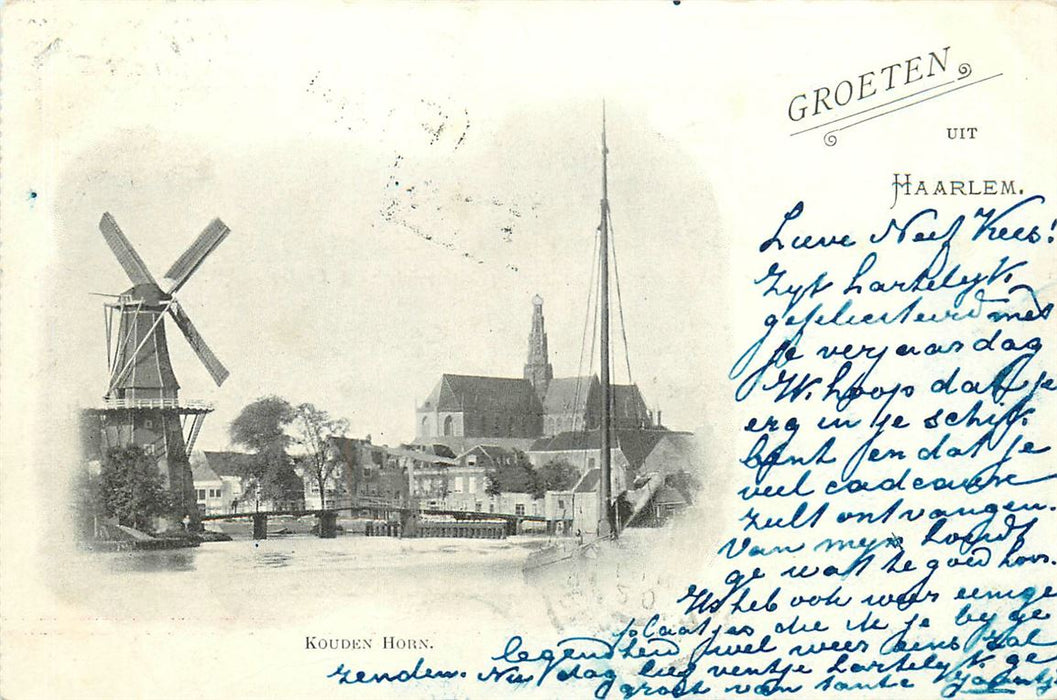 GROETEN
UIT
HAARLEM.
Lieve Neef Kees!
Zyt hartelyk
gefeliciteerd met
je verjaardag
Ik hoop dat je
erg in je schik
bent en dat je
veel cadeaux
zult ontvangen.
Van myn hoofdt
ge wat te goed hoor.
Ik heb ook weer eenige
plaatjes die ik je by ge
legenheid wel weer eens zal
zenden. Nu dag lief ventje hartelyk ge
groet van tante
KOUDEN HORN.